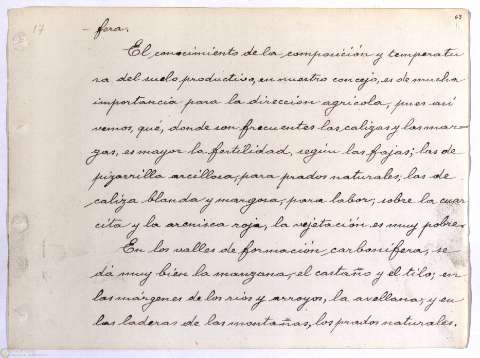 63
17
- fera.
El conocimiento de la composición y temperatu
ra del suelo productivo, en nuestro concejo, es de mucha
importancia para la dirección agrícola, pues así
vemos, qué, donde son frecuentes las calizas y las mar-
gas, es mayor la fertilidad, según las fajas; las de
pizarrilla arcillosa, para prados naturales; las de
caliza blanda y margosa, para labor; sobre la cuar
cita y la arenisca roja, la vejetación es muy pobre.
En los valles de formación carbonífera, se
dá muy bien la manzana, el castaño y el tilo; en
las márgenes de los ríos y arroyos, la avellana; y en
las laderas de las montañas, los prados naturales.